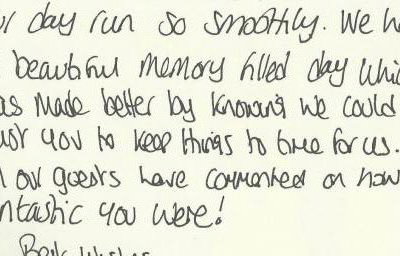 ur day run so smoothly. We ha
beautiful memory filled day whic
as made better by knowing we could
ust you to keep things to time for us.
l our guests have commented on how
ntastic you were!
Best Wishes